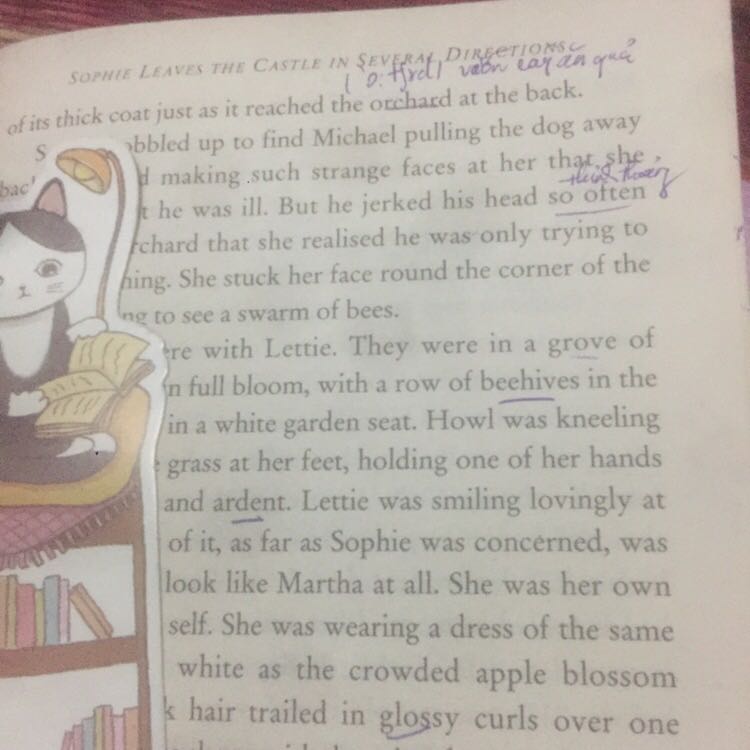 SOPHIE LEAVES THE CASTLE IN SEVERAL DIRECTIONS
vườn cây ăn quả
of its thick coat just as it reached the orchard at the back.
S bbled up to find Michael pulling the dog away
bac' d making such strange faces at her that she
thỉnh thoảng
t he was ill. But he jerked his head so often
rchard that she realised he was only trying to
hing. She stuck her face round the corner of the
ng to see a swarm of bees.
ere with Lettie. They were in a grove of
n full bloom, with a row of beehives in the
in a white garden seat. Howl was kneeling
e grass at her feet, holding one of her hands
and ardent. Lettie was smiling lovingly at
of it, as far as Sophie was concerned, was
look like Martha at all. She was her own
self. She was wearing a dress of the same
white as the crowded apple blossom
k hair trailed in glossy curls over one